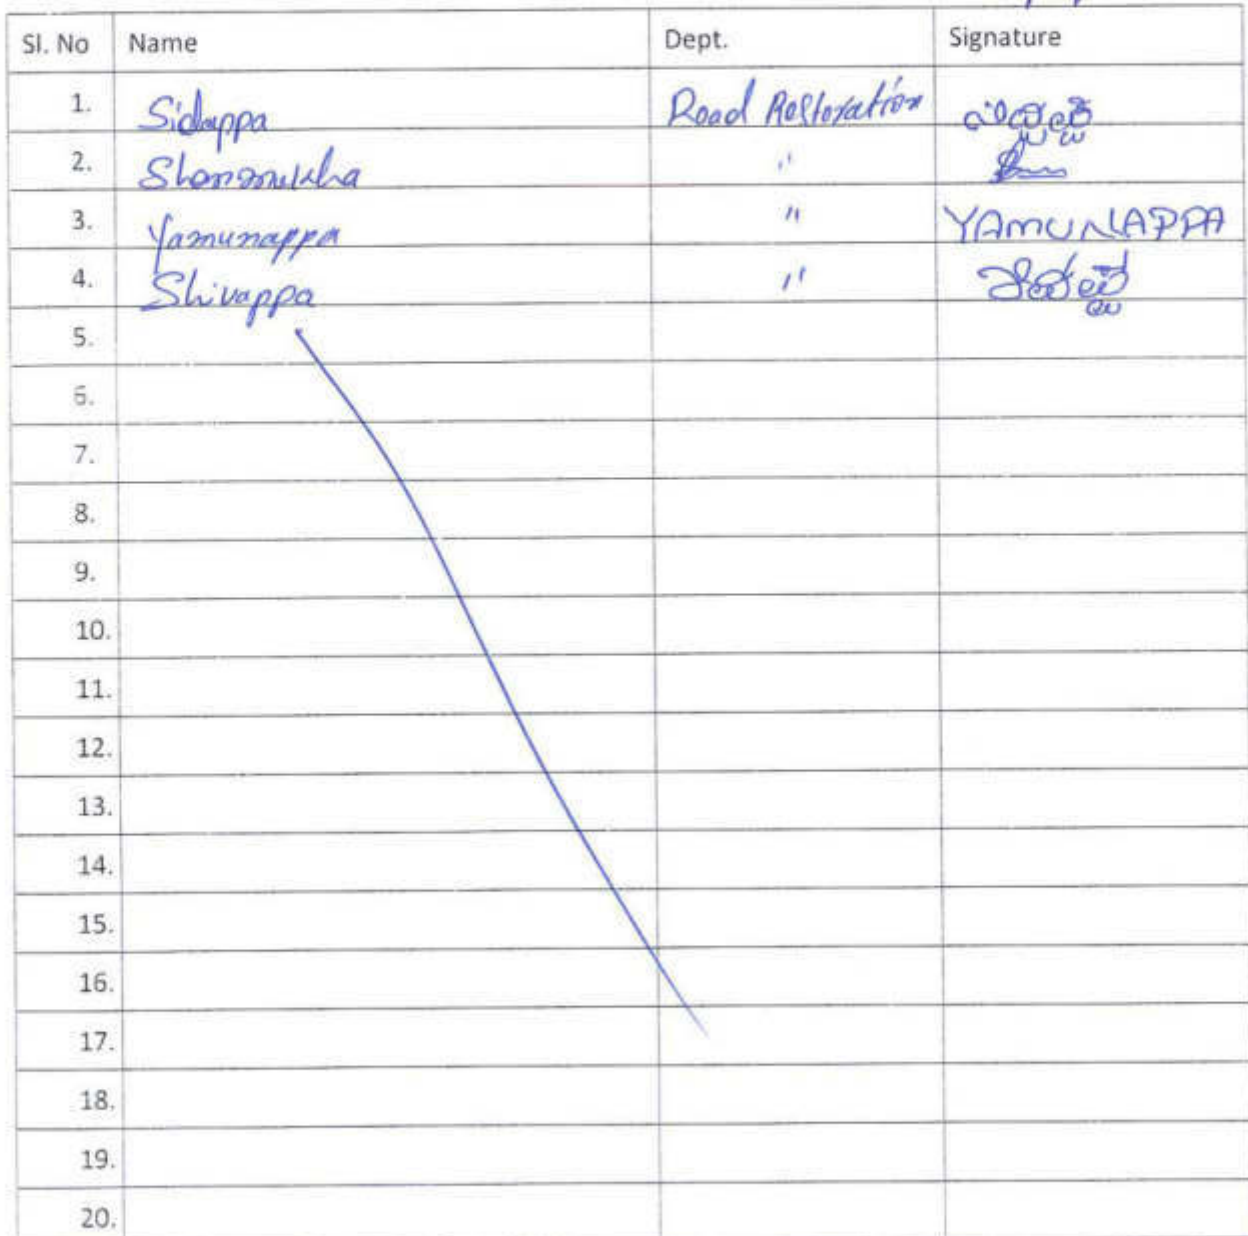 Sl. No Name Dept. Signature
1. Sidappa Road Restoration ಸಿದ್ದಪ್ಪ
2. Shanmukha "
3. Yamunappa " YAMUNAPPA
4. Shivappa " ಶಿವಪ್ಪ
5.
6.
7.
8.
9.
10.
11.
12.
13.
14.
15.
16.
17.
18.
19.
20.